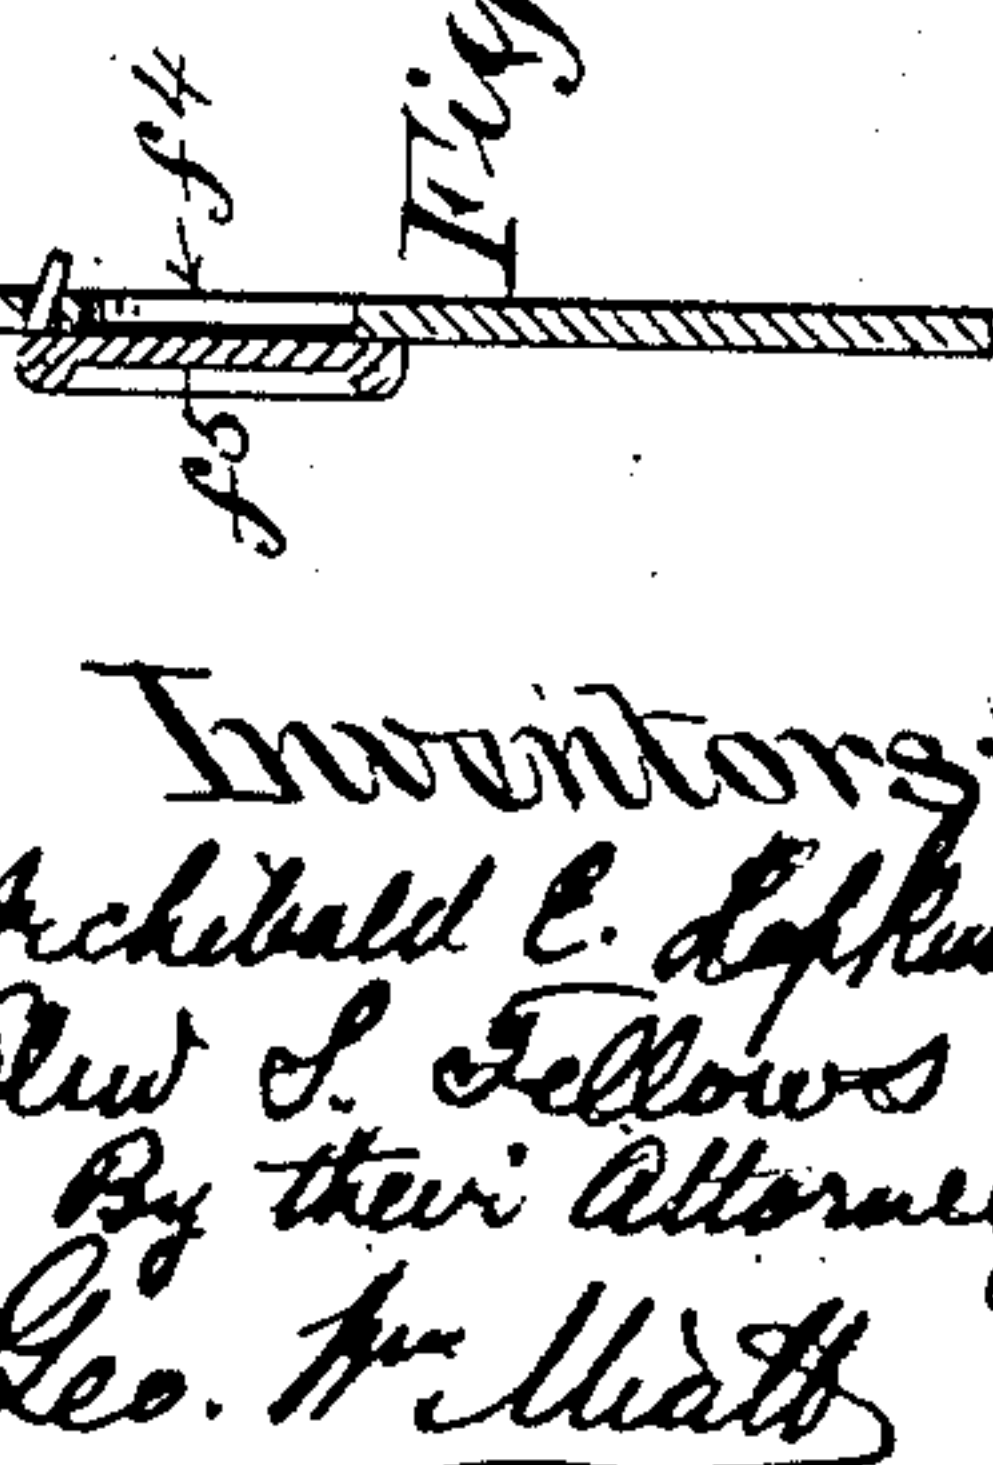 f4
Fig
f5
Inventors:
Archibald C. Hopkins
S. Fellows
By their Attorney
Geo. Wm Miatt